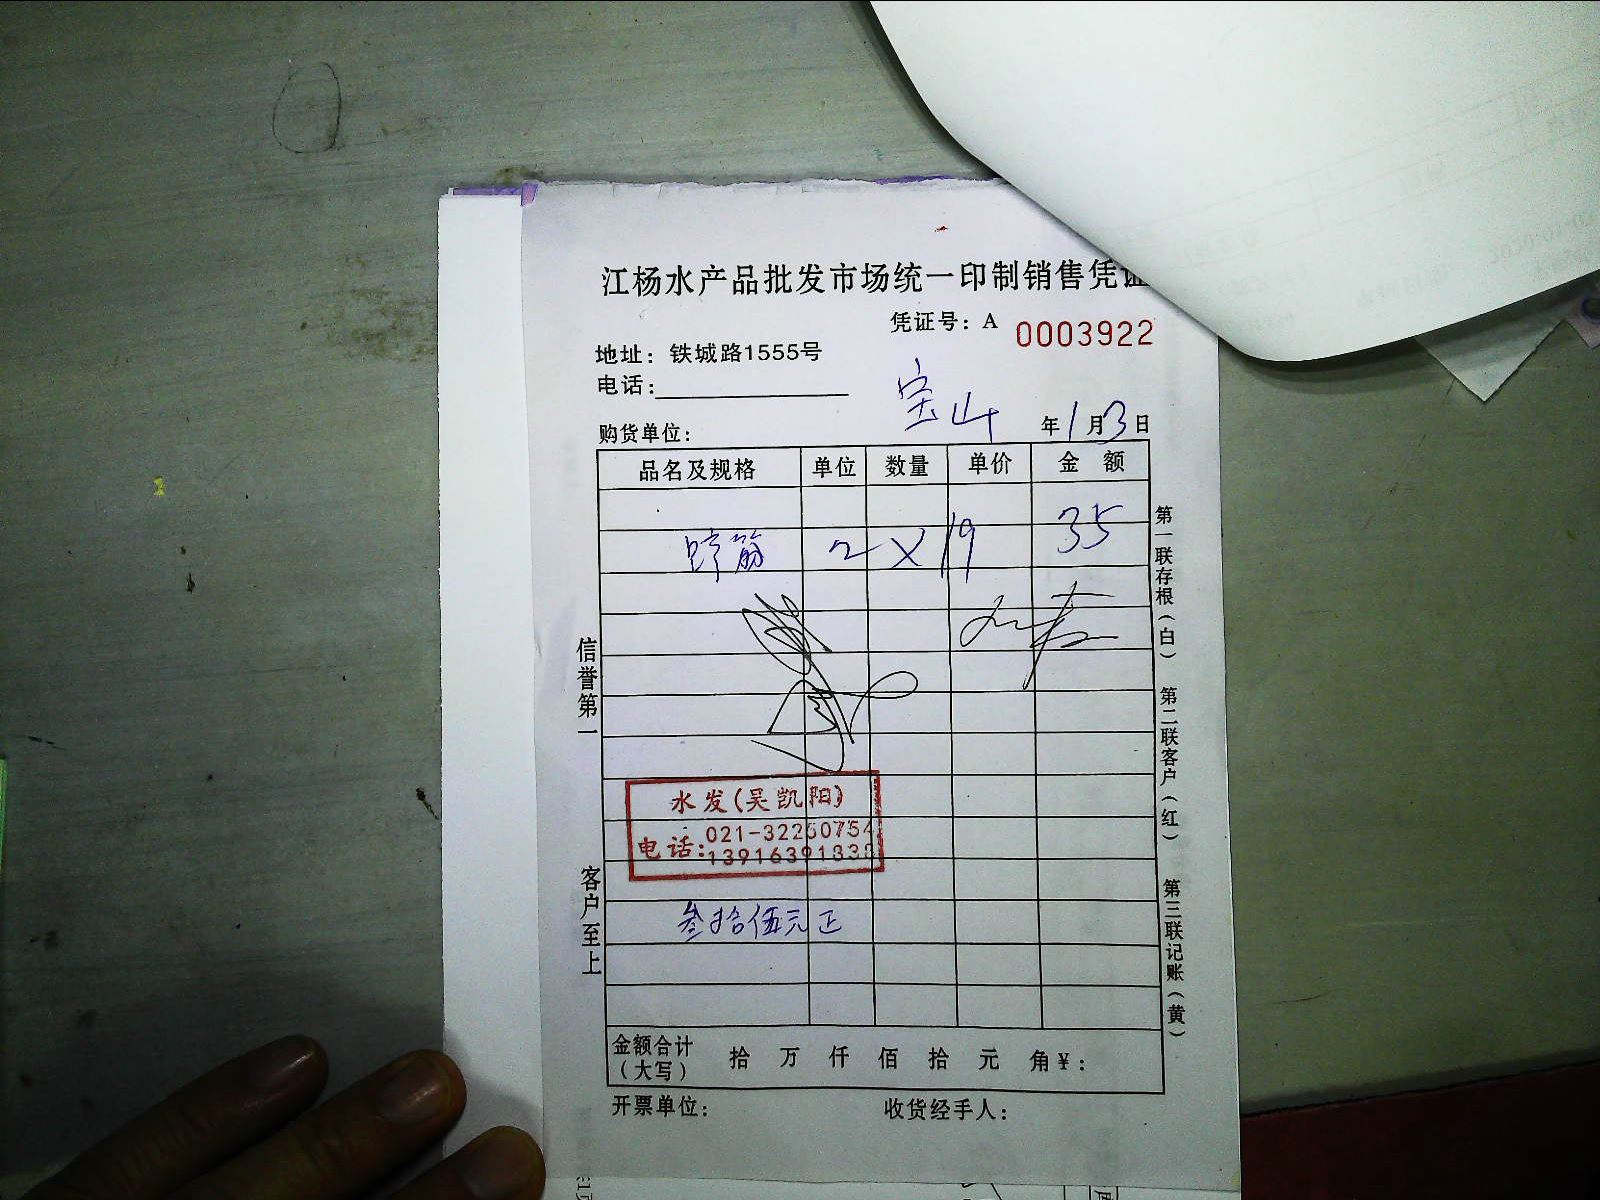 江杨水产品批发市场统一印制销售凭证
凭证号：A 0003922
地址：铁城路1555号
电话：
宝山
购货单位： 年1月3日
品名及规格 单位 数量 单价 金额
蹄筋 2 X 19 35
水发(吴凯阳)
电话：021-32260754
叁拾伍元正
金额合计（大写） 拾 万 仟 佰 拾 元 角 ¥：
开票单位： 收货经手人：
信誉第一
客户至上
第一联存根（白）
第二联客户（红）
第三联记账（黄）